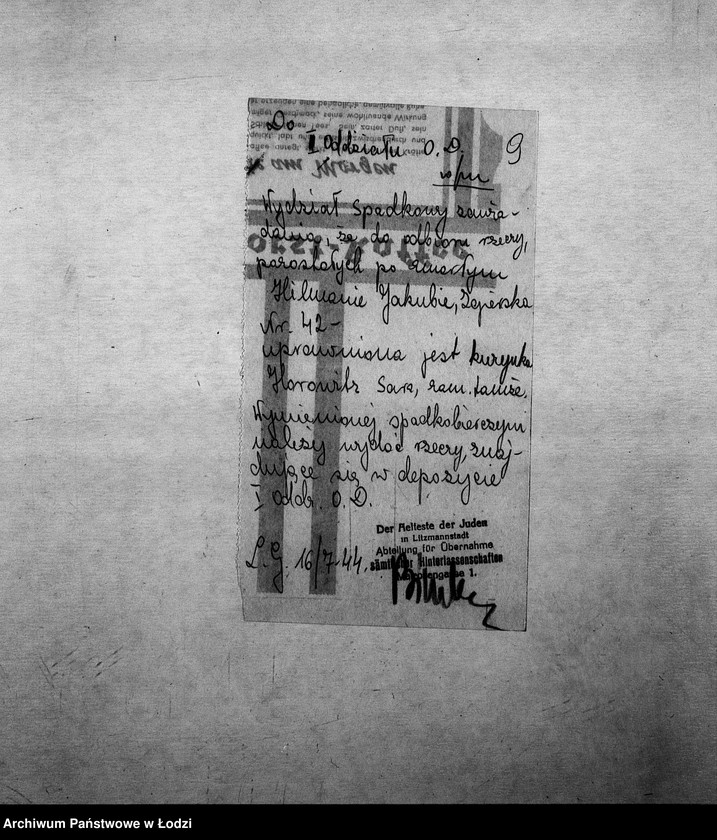 9
Do
I Oddziału O. D.
w/m
Wydział Spadkowy zawia-
damia, że do odbioru rzeczy,
pozostałych po zmarłym
Hilmanie Jakubie, Zgierska
Nr. 42 -
uprawniona jest kuzynka
Horowitz Sara, zam. tamże.
Wymienionej spadkobierczyni
należy wydać rzeczy, znaj-
dujące się w depozycie
I Oddz. O. D.
L. G. 16/7-44.
Der Aelteste der Juden
in Litzmannstadt
Abteilung für Übernahme
sämtlicher Hinterlassenschaften
1.
am Morgen
Archiwum Państwowe w Łodzi